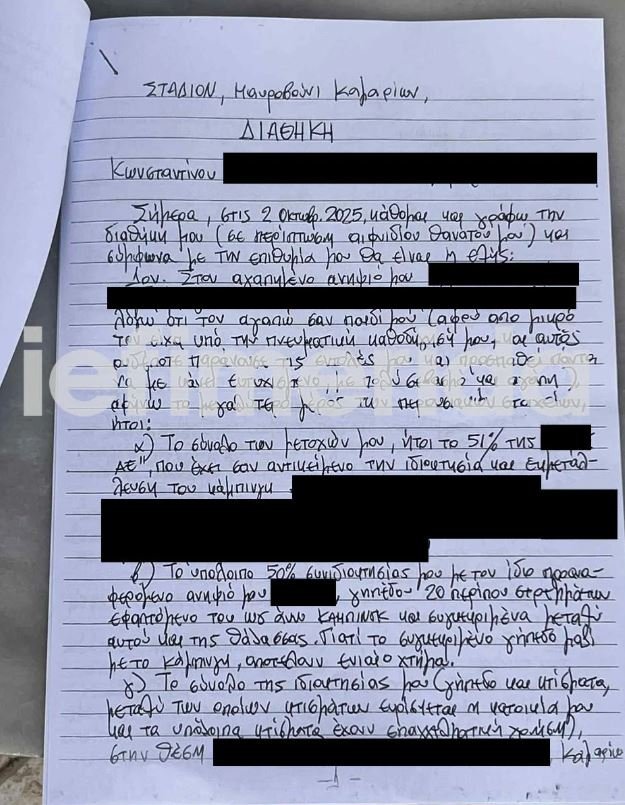 ΣΤΑΔΙΟΝ, Μαυροβούνι Καμαρίων,
ΔΙΑΘΗΚΗ
Κωνσταντίνου
Σήμερα, στις 2 Οκτωβρ. 2025, κάθομαι και γράφω την
διαθήκη μου (σε περίπτωση αιφνιδίου θανάτου μου) και
σύμφωνα με την επιθυμία μου θα είναι η εξής:
1ον. Στον αγαπημένο ανηψιό μου
λόγω ότι τον αγαπώ σαν παιδί μου (αφού από μικρό
τον είχα υπό την πνευματική καθοδήγησή μου, και αυτός
ουδέποτε παράκουσε τις εντολές μου και προσπαθεί πάντα
να με κάνει ευτυχισμένο, με το σεβασμό και αγάπη),
αφήνω το μεγαλύτερο μέρος των περιουσιακών στοιχείων,
ήτοι:
α) Το σύνολο των μετοχών μου, ήτοι το 51% της
ΑΕ", που έχει σαν αντικείμενο την ιδιοκτησία και εκμετάλ-
λευση του κάμπινγκ
β) Το υπόλοιπο 50% συνιδιοκτησίας μου με τον ίδιο προανα-
φερόμενο ανηψιό μου, γηπέδου 20 περίπου στρεμμάτων
εφαπτόμενο του ως άνω ΚΑΜΠΙΝΓΚ και συγκεκριμένα μεταξύ
αυτού και της θάλασσας. Γιατί το συγκεκριμένο γήπεδο μαζί
με το κάμπινγκ, αποτελούν ενιαίο κτήμα.
γ) Το σύνολο της ιδιοκτησίας μου (γήπεδο και κτίσματα,
μεταξύ των οποίων κτισμάτων ευρίσκεται η κατοικία μου
και τα υπόλοιπα κτίσματα έχουν επαγγελματική χρήση),
στην θέση
-1-